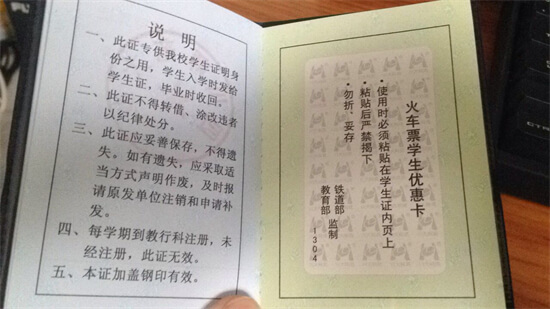 说 明
一、此证专供我校学生证明身
份之用，学生入学时发给
学生证，毕业时收回。
二、此证不得转借、涂改违者
以纪律处分。
三、此证应妥善保存，不得遗
失。如有遗失，应采取适
当方式声明作废，及时报
请原发单位注销和申请补
发。
四、每学期到教行科注册，未
经注册，此证无效。
五、本证加盖钢印有效。
火车票学生优惠卡
·使用时必须粘贴在学生证内页上
·粘贴后严禁揭下
·勿折、妥存
铁道部
教育部
监制
1304